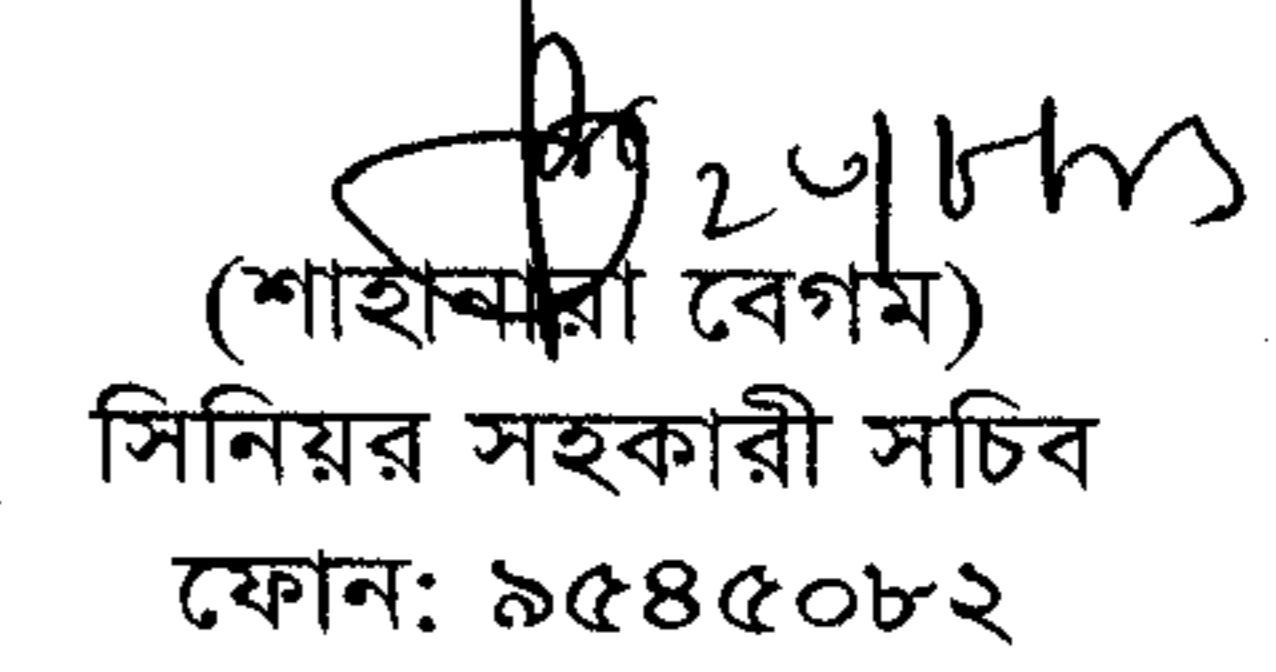 (শাহানারা বেগম)
সিনিয়র সহকারী সচিব
ফোন: ৯৫৪৫০৮২